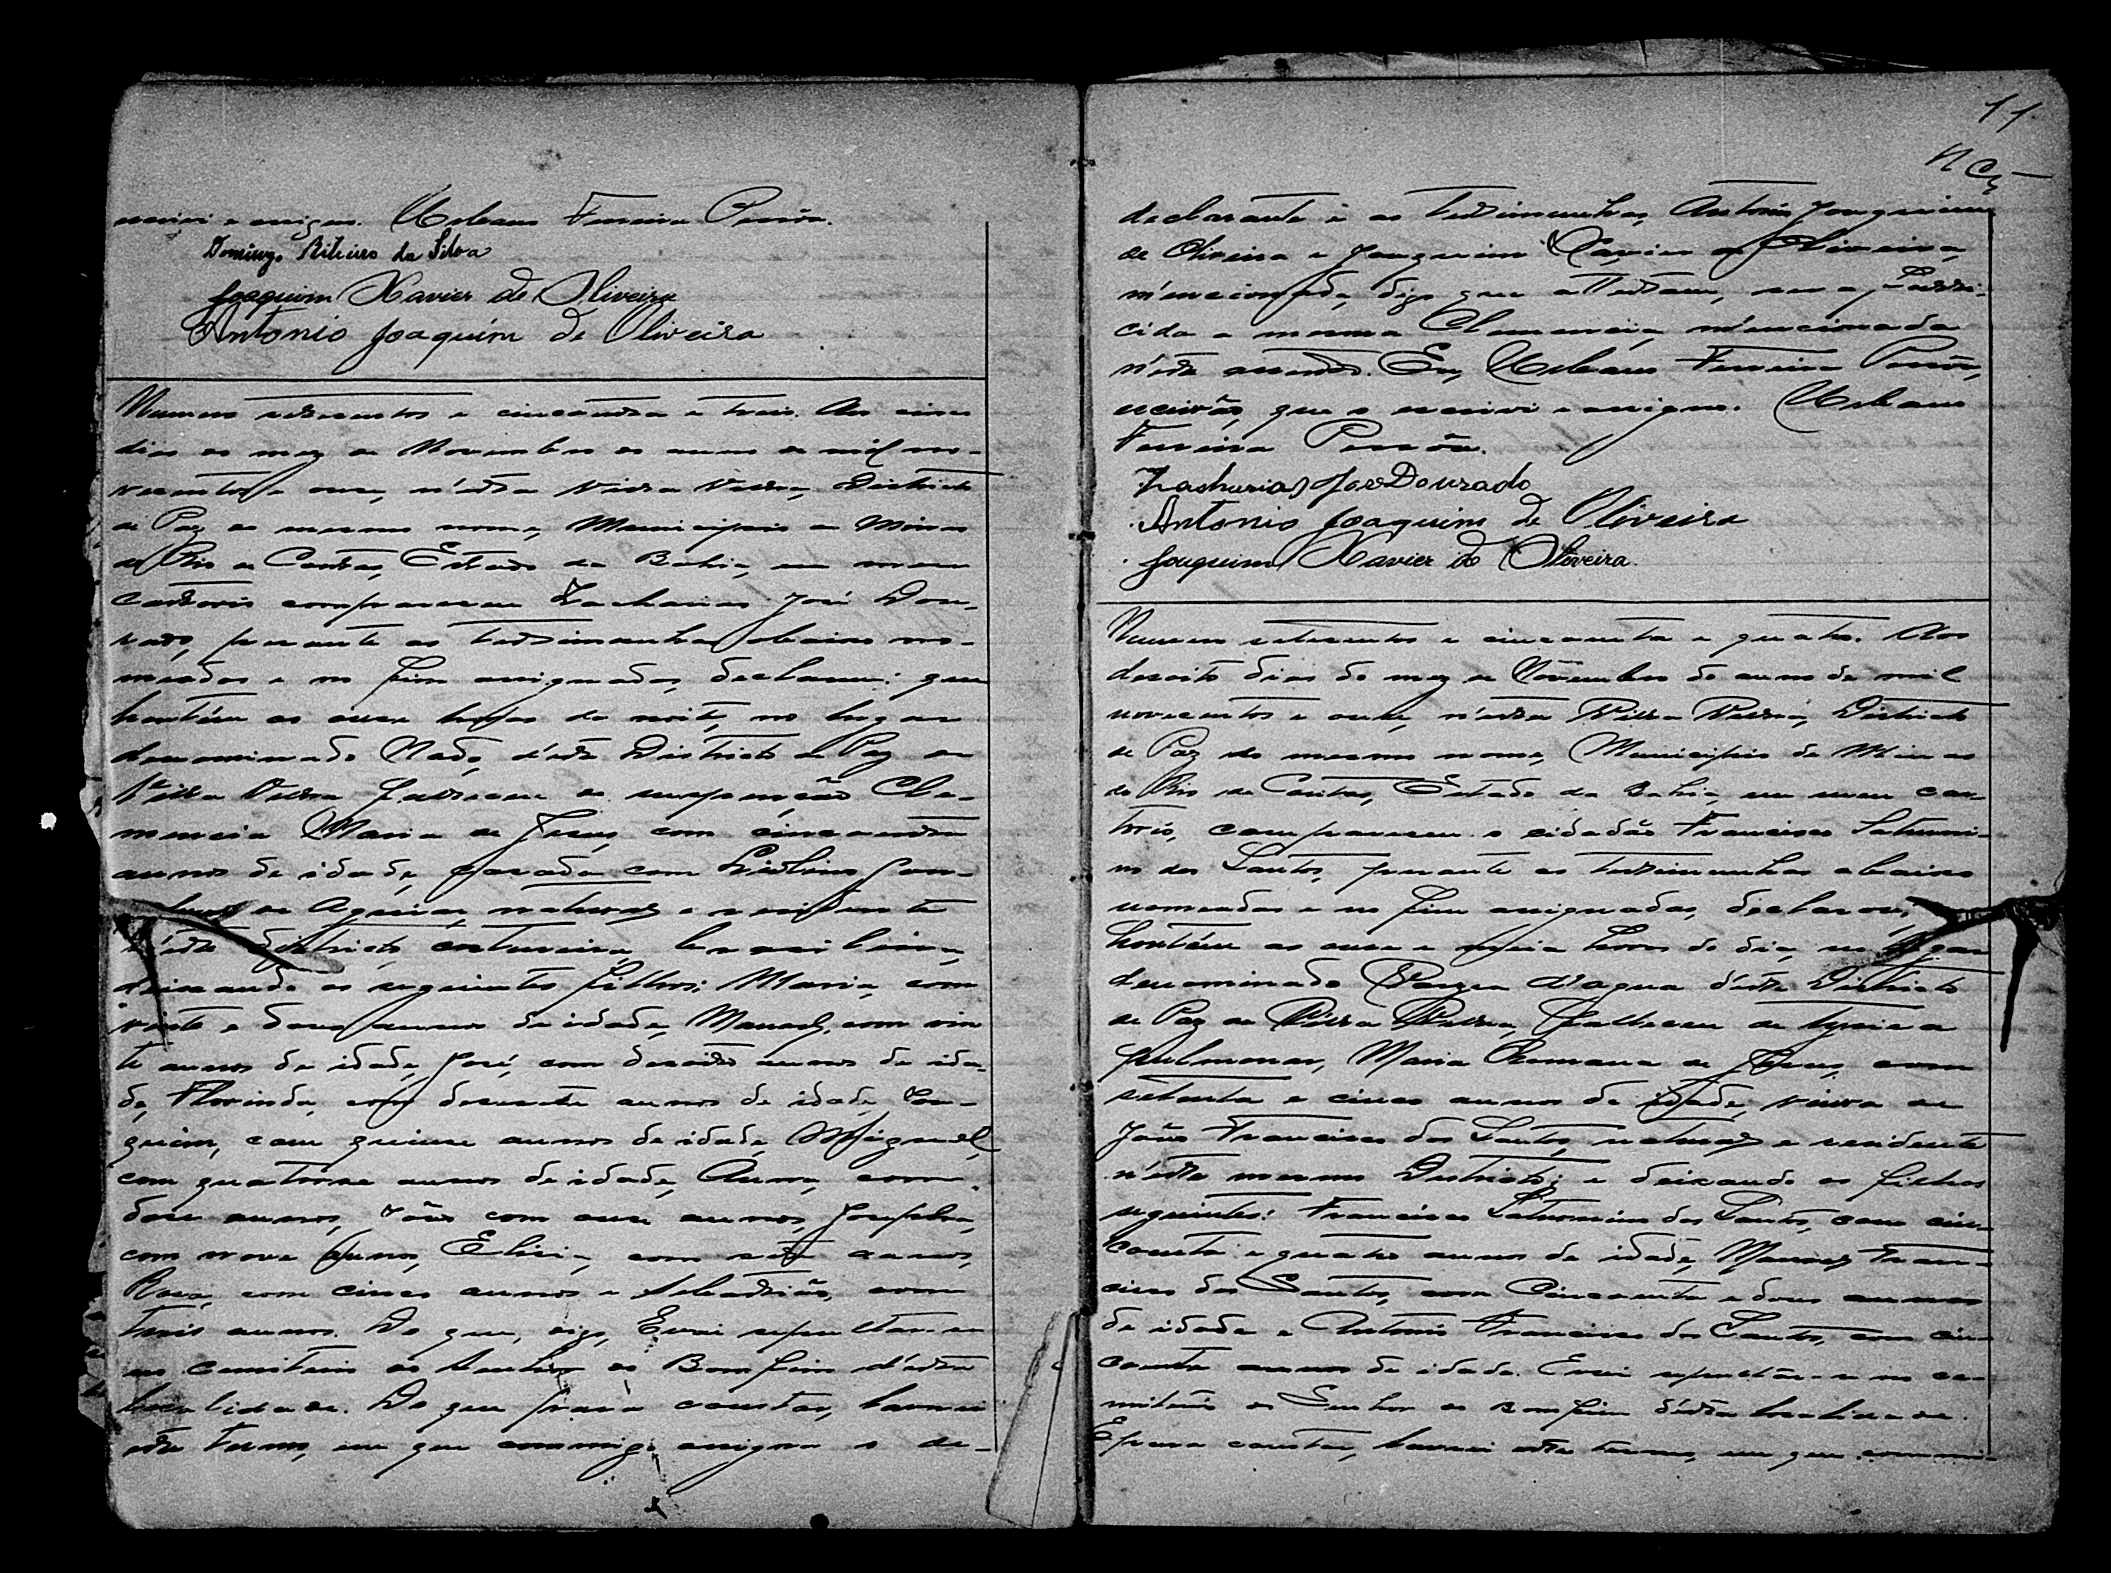 escrivi e assigno. Urbano Ferreira Pessôa.
Domingo Ribeiro da Silva
Joaquim Xavier de Oliveira
Antonio Joaquim de Oliveira
Numero setecentos e cincoenta e treis. Aos cinco
dias do mez de Novembro do anno de mil no-
vecentos e onze, n'esta Villa Velha, Districto
de Paz do mesmo nome, Municipio de Minas
do Rio de Contas, Estado da Bahia, em meu
cartorio compareceu Zacharias José Dou-
rado, perante as testimunhas abaixo no-
meadas e no fim assignadas, declarou: que
hontém as onze horas da noite, no lugar
denominado d'este Districto de Paz de
Villa Velha falleceu de suspenção Cle-
mencia Maria de Jesus, com cincoenta
annos de idade, casada com
de Aguiar, natural e residente
n'este districto, costureira, brasileira,
deixando os seguintes filhos: Maria, com
vinte e dous annos de idade, Manoel, com vin
te annos de idade, José, com desoito annos de ida-
de, Florinda, com desesete annos de idade, Joa-
quim, com quinse annos de idade, Miguel,
com quatorse annos de idade, Anna, com
dose annos, João com onze annos, Josepha,
com nove annos, Elisia, com sete annos,
Rosa, com cinco annos e Sebastião, com
treis annos. Do que, digo, E vai sepultar-se
no cemiterio do Senhor do Bomfim d'esta
localidade. Do que para constar, lavrei
este termo, em que commigo assigna o de-
11
declarante e as testimunhas, Antonio Joaquim
de Oliveira e Joaquim Xavier de Oliveira,
mencionada, digo que attestam, ser a falle-
cida a mesma Clemencia, mencionada
n'este assento. Eu, Urbano Ferreira Pessôa,
escrivão, que o escrivi e assigno. Urbano
Ferreira Pessôa.
Zacharias José Dourado
Antonio Joaquim de Oliveira
Joaquim Xavier de Oliveira.
Numero setecentos e cincoenta e quatro. Aos
desoito dias do mez de Novembro do anno de mil
novecentos e onze, n'esta Villa Velha, Districto
de Paz do mesmo nome, Municipio de Minas
do Rio de Contas, Estado da Bahia, em meu car-
torio, compareceu o cidadão Francisco Saturni-
no dos Santos, perante as testimunhas abaixo
nomeadas e no fim assignadas, declarou,
hontém as onze e meia horas do dia, no lugar
denominado Varzea d'agua d'este Districto
de Paz de Villa Velha, falleceu de tysica
pulmonar, Maria Romana de Jesus, com
setenta e cinco annos de idade, viuva de
João Francisco dos Santos, natural e residente
n'este mesmo Districto; e deixando os filhos
seguintes: Francisco Saturnino dos Santos, com cin-
coenta e quatro annos de idade, Manoel Fran-
cisco dos Santos, com Cincoenta e dous annos
de idade e Antonio Francisco dos Santos, com cin-
coenta annos de idade. E vai sepultar-se no ce-
miterio do Senhor do Bomfim d'esta localidade.
E para constar, lavrei este termo, em que commi-